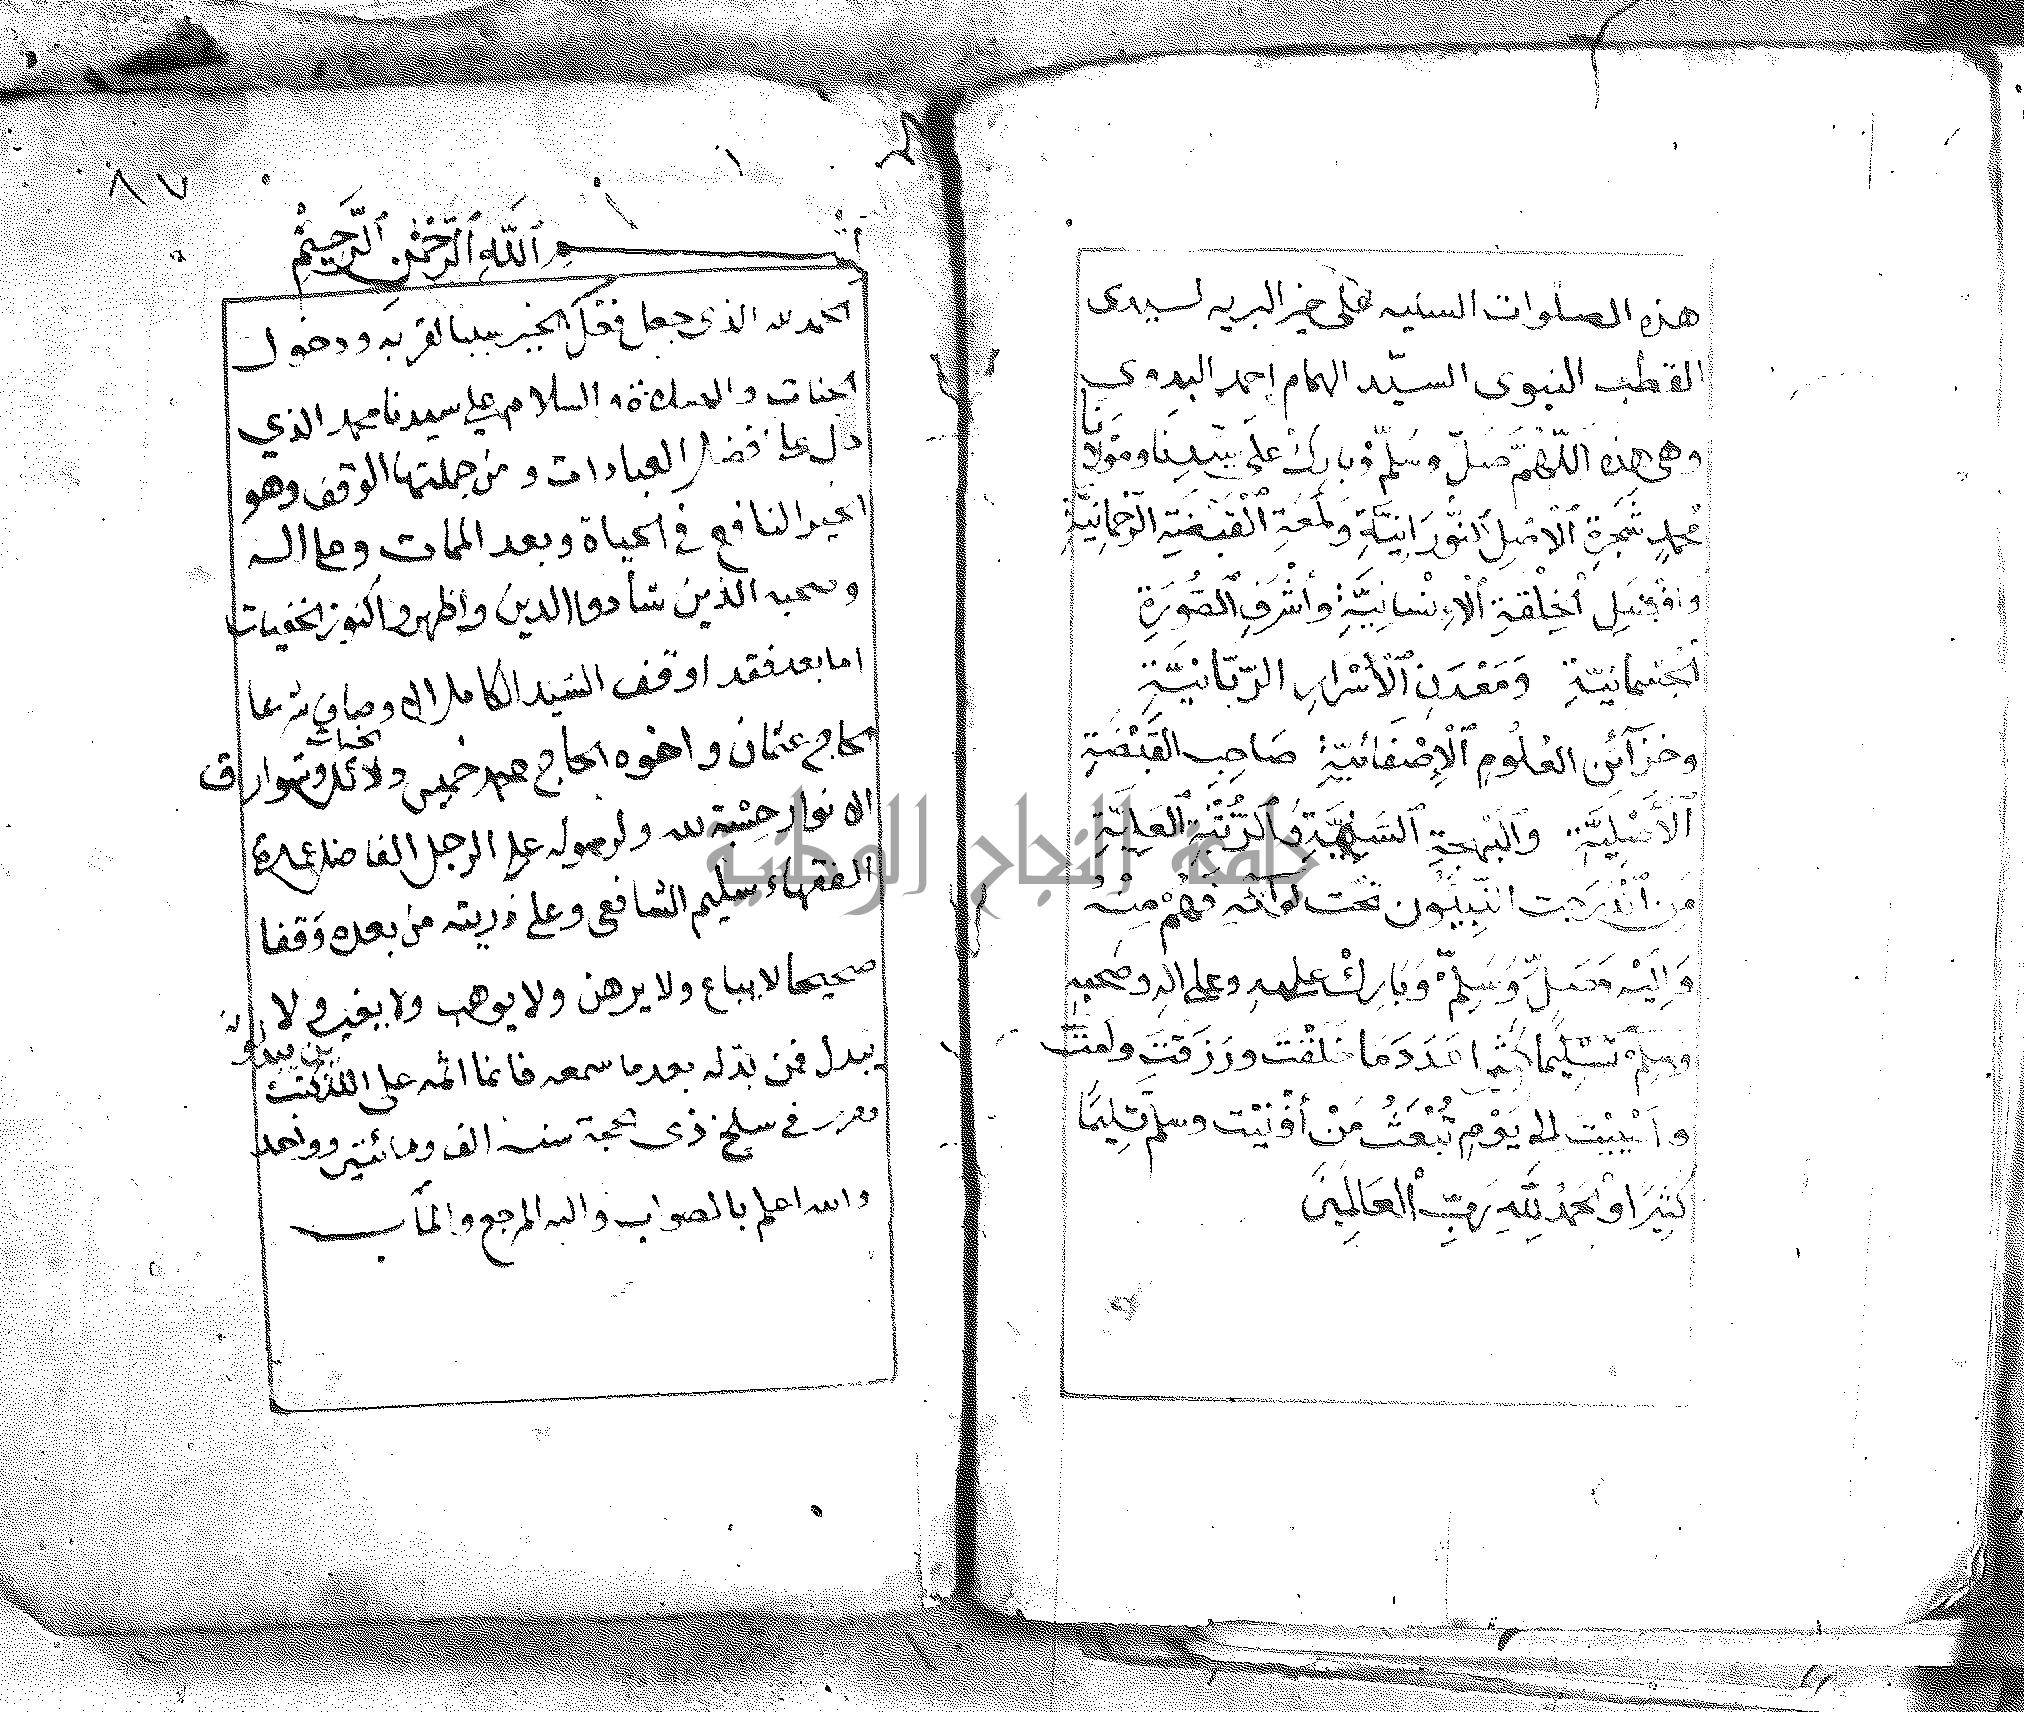 هذه الصلوات السنيه على خير البريه لسيدى
القطب النبوى السيّد الهمام احمد البدوي
وهى هذه اللّهُمَّ صَلّ وسَلِّم وبَارِكْ عَلَى سَيّدِنَا ومَوْلَانَا
مُحمدٍ شَجَرَةِ ٱلْأَصْلِ ٱلنُّورَانِيَّةِ ولَمْعَةِ ٱلْقَبْضَةِ الرَّحْمَانِيَّةِ
وأَفْضَلِ ٱلْخِلْقَةِ ٱلْاِءنْسَانِيَّةِ وأشْرَفِ ٱلصُّورَةِ
ٱلْجُسْمَانِيّةِ وَمَعْدَنِ ٱلْأَسْرَارِ الرَّبَّانِيَّةِ
وخزَآئنِ العُلُومِ ٱلْاِصْفَائيَّةِ صَاحِبِ القَبْضَةِ
ٱلْأَصْلِيَّةِ وٱلْبَهجَةِ ٱلسَّنِيَّةِ وٱلرُّتْبَةِ ٱلعَلِيَّةِ
مَنِ ٱنْدَرَجَت النّبِيّون تحْت لوآئهِ فَهُمْ مِنْهُ
وَاِلَيْهِ وَصَلِّ وَسَلِّمْ وَبَارِكْ عليهِ وعلى اله وصَحبِهِ
وسلِّم تَسْلِيمًا كثيرا عَدَدَ مَا خَلَقْتَ ورَزَقتَ وأمَتَّ
وأَحْيَيْت اِلى يَوْمِ تُبْعَثُ مَنْ أفْنَيْت وسلّم تسليمًا
كثِيرًا وٱلحَمْدُ لِلّهِ رَبِّ ٱلْعَالَمِينَ
٨٧
١
بسم ٱللَّهِ ٱلرَّحْمٰنِ ٱلرَّحِيمِ
الحمد لله الذى جعل فعل الخير سببا لقربه ودخول
الجنات والصلاة والسلام على سيدنا محمد الذي
دل على افضل العبادات ومن جملتها الوقف وهو
الخير النافع في الحياة وبعد الممات وعلى اله
وصحبه الذين شادوا الدين واظهروا الكنوز الخفيات
اما بعد فقد اوقف السيد الكامل الاوصاف
الحاج عثمان واخوه الحاج محمد خميس دلائل الخيرات وشوارق
الانوار حسبة لله ولرسوله على الرجل الفاضل عمدة
الفقهاء سليم الشافعى وعلى ذريته من بعده وقفا
صحيحا لا يباع ولا يرهن ولا يوهب ولا يغير ولا
يبدل فمن بدّله بعد ما سمعه فانما اثمه على الذين يبدلونه
حرر في سلخ ذى الحجة سنة الف ومائتين وواحد
والله اعلم بالصواب واليه المرجع والمآب
جامعة النجاح الوطنية